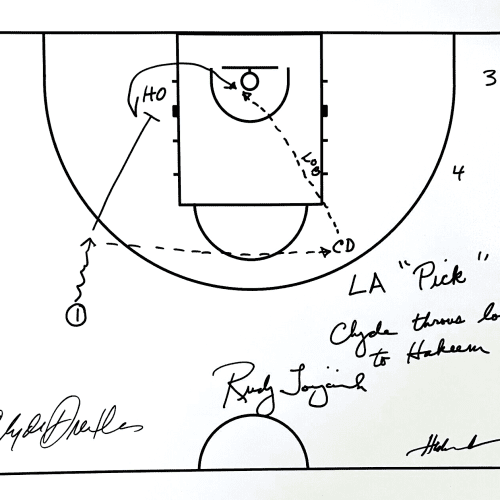 HO
3
LOB
4
CD
LA "Pick"
1
Clyde throws lo
to Hakeem
Rudy Tomjanovich
Clyde Drexler